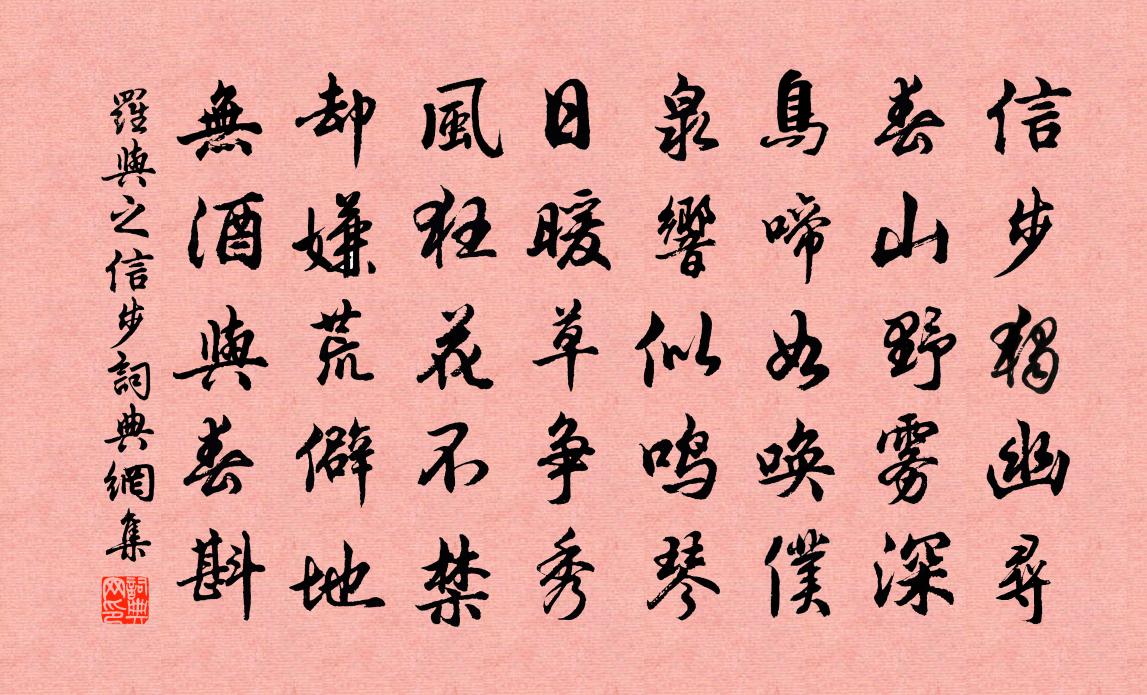 信步獨幽尋
春山野霧深
鳥啼如喚僕
泉響似鳴琴
日暖草爭秀
風狂花不禁
却嫌荒僻地
無酒與春斟
羅與之信步詞典網集
詞典網印